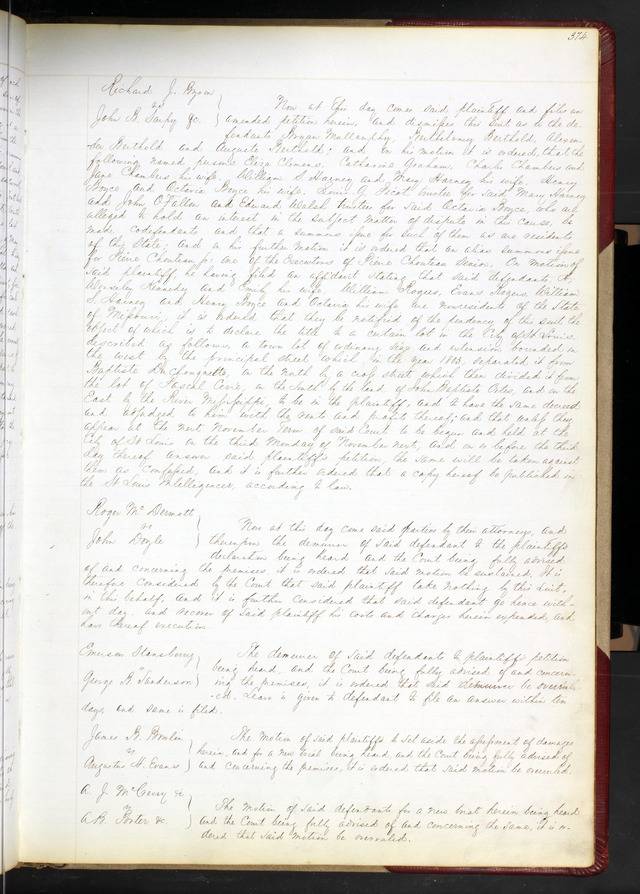 374
Richard J. Byrne
vs
John B. Sarpy &c. } Now at this day comes said plaintiff and files an
amended petition herein, and dismisses this suit as to the de-
fendants Bryan Mullanphy, Bartholomew Berthold, Alexan-
der Berthold and Augustus Berthold; and on his motion it is ordered, that the
following named persons Eliza Clemens, Catharine Graham, Charles Chambers and
Jane Chambers his wife, William S Harney and Mary Harney his wife, Henry
Boyce and Octavia Boyce his wife, Louis A. trustee for said Mary Harney
and John O'Fallon and Edward Walsh trustees for said Octavia Boyce, who are
alleged to hold an interest in the subject matter of dispute in the cause, be
made codefendants and that a summons issue for such of them as are residents
of this State; and on his further motion it is ordered that an alias summons issue
for Pierre Chouteau jr. one of the Executors of Pierre Chouteau Senior. On motion of
said plaintiff he having filed an affidavit stating that said defendants A.
Kennedy and his wife, William Rogers, Evans Rogers, William
S. Harney and Henry Boyce and Octavia his wife are nonresidents of the State
of Missouri, it is ordered that they be notified of the pendency of this suit the
object of which is to declare the title to a certain lot in the City of St Louis
described as follows, a town lot of ordinary size and extension bounded on
the west by the principal street which in the year 1803, separated it from
Baptiste on the North by a cross street which then divided it from
the lot of Pascal Cerré, on the South by the land of John Baptiste and on the
East by the River Mississippi, to be in the plaintiff, and to have the same decreed
and adjudged to him with the rents and profits thereof; and that unless they
appear at the next November Term of said Court to be begun and held at the
City of St Louis on the third Monday of November next, and on or before the third
day thereof answer said plaintiff's petition, the same will be taken against
them as confessed, and it is further ordered that a copy hereof be published in
the St Louis Intelligencer, according to law.
Roger McDermott
vs
John Doyle } Now at this day come said parties by their attorneys, and
thereupon the demurrer of said defendant to the plaintiff's
declaration being heard and the Court being fully advised
of and concerning the premises, it is ordered that said motion be sustained. It is
therefore considered by the Court that said plaintiff take nothing by this suit,
in this behalf, and it is further considered that said defendant go hence with-
out day. and recover of said plaintiff his costs and charges herein expended, and
have thereof execution.
Emerson Stansberry
vs
George R Sanderson } The demurrer of said defendants to plaintiff's petition
being heard, and the Court being fully advised of and concern-
ing the premises, it is ordered that said demurrer be overrul-
-ed. Leave is given to defendant to file an answer within ten
days, and same is filed.
James B. Bowlin
vs
Augustus H. Evans } The motion of said plaintiffs to set aside the assessment of damages
herein, and for a new trial being heard, and the Court being fully advised of
and concerning the premises, it is ordered that said motion be overruled.
A J. McCreery &c
vs
A. R. Porter &c } The motion of said defendants for a new trial herein being heard
and the Court being fully advised of and concerning the same, it is or-
dered that said motion be overruled.